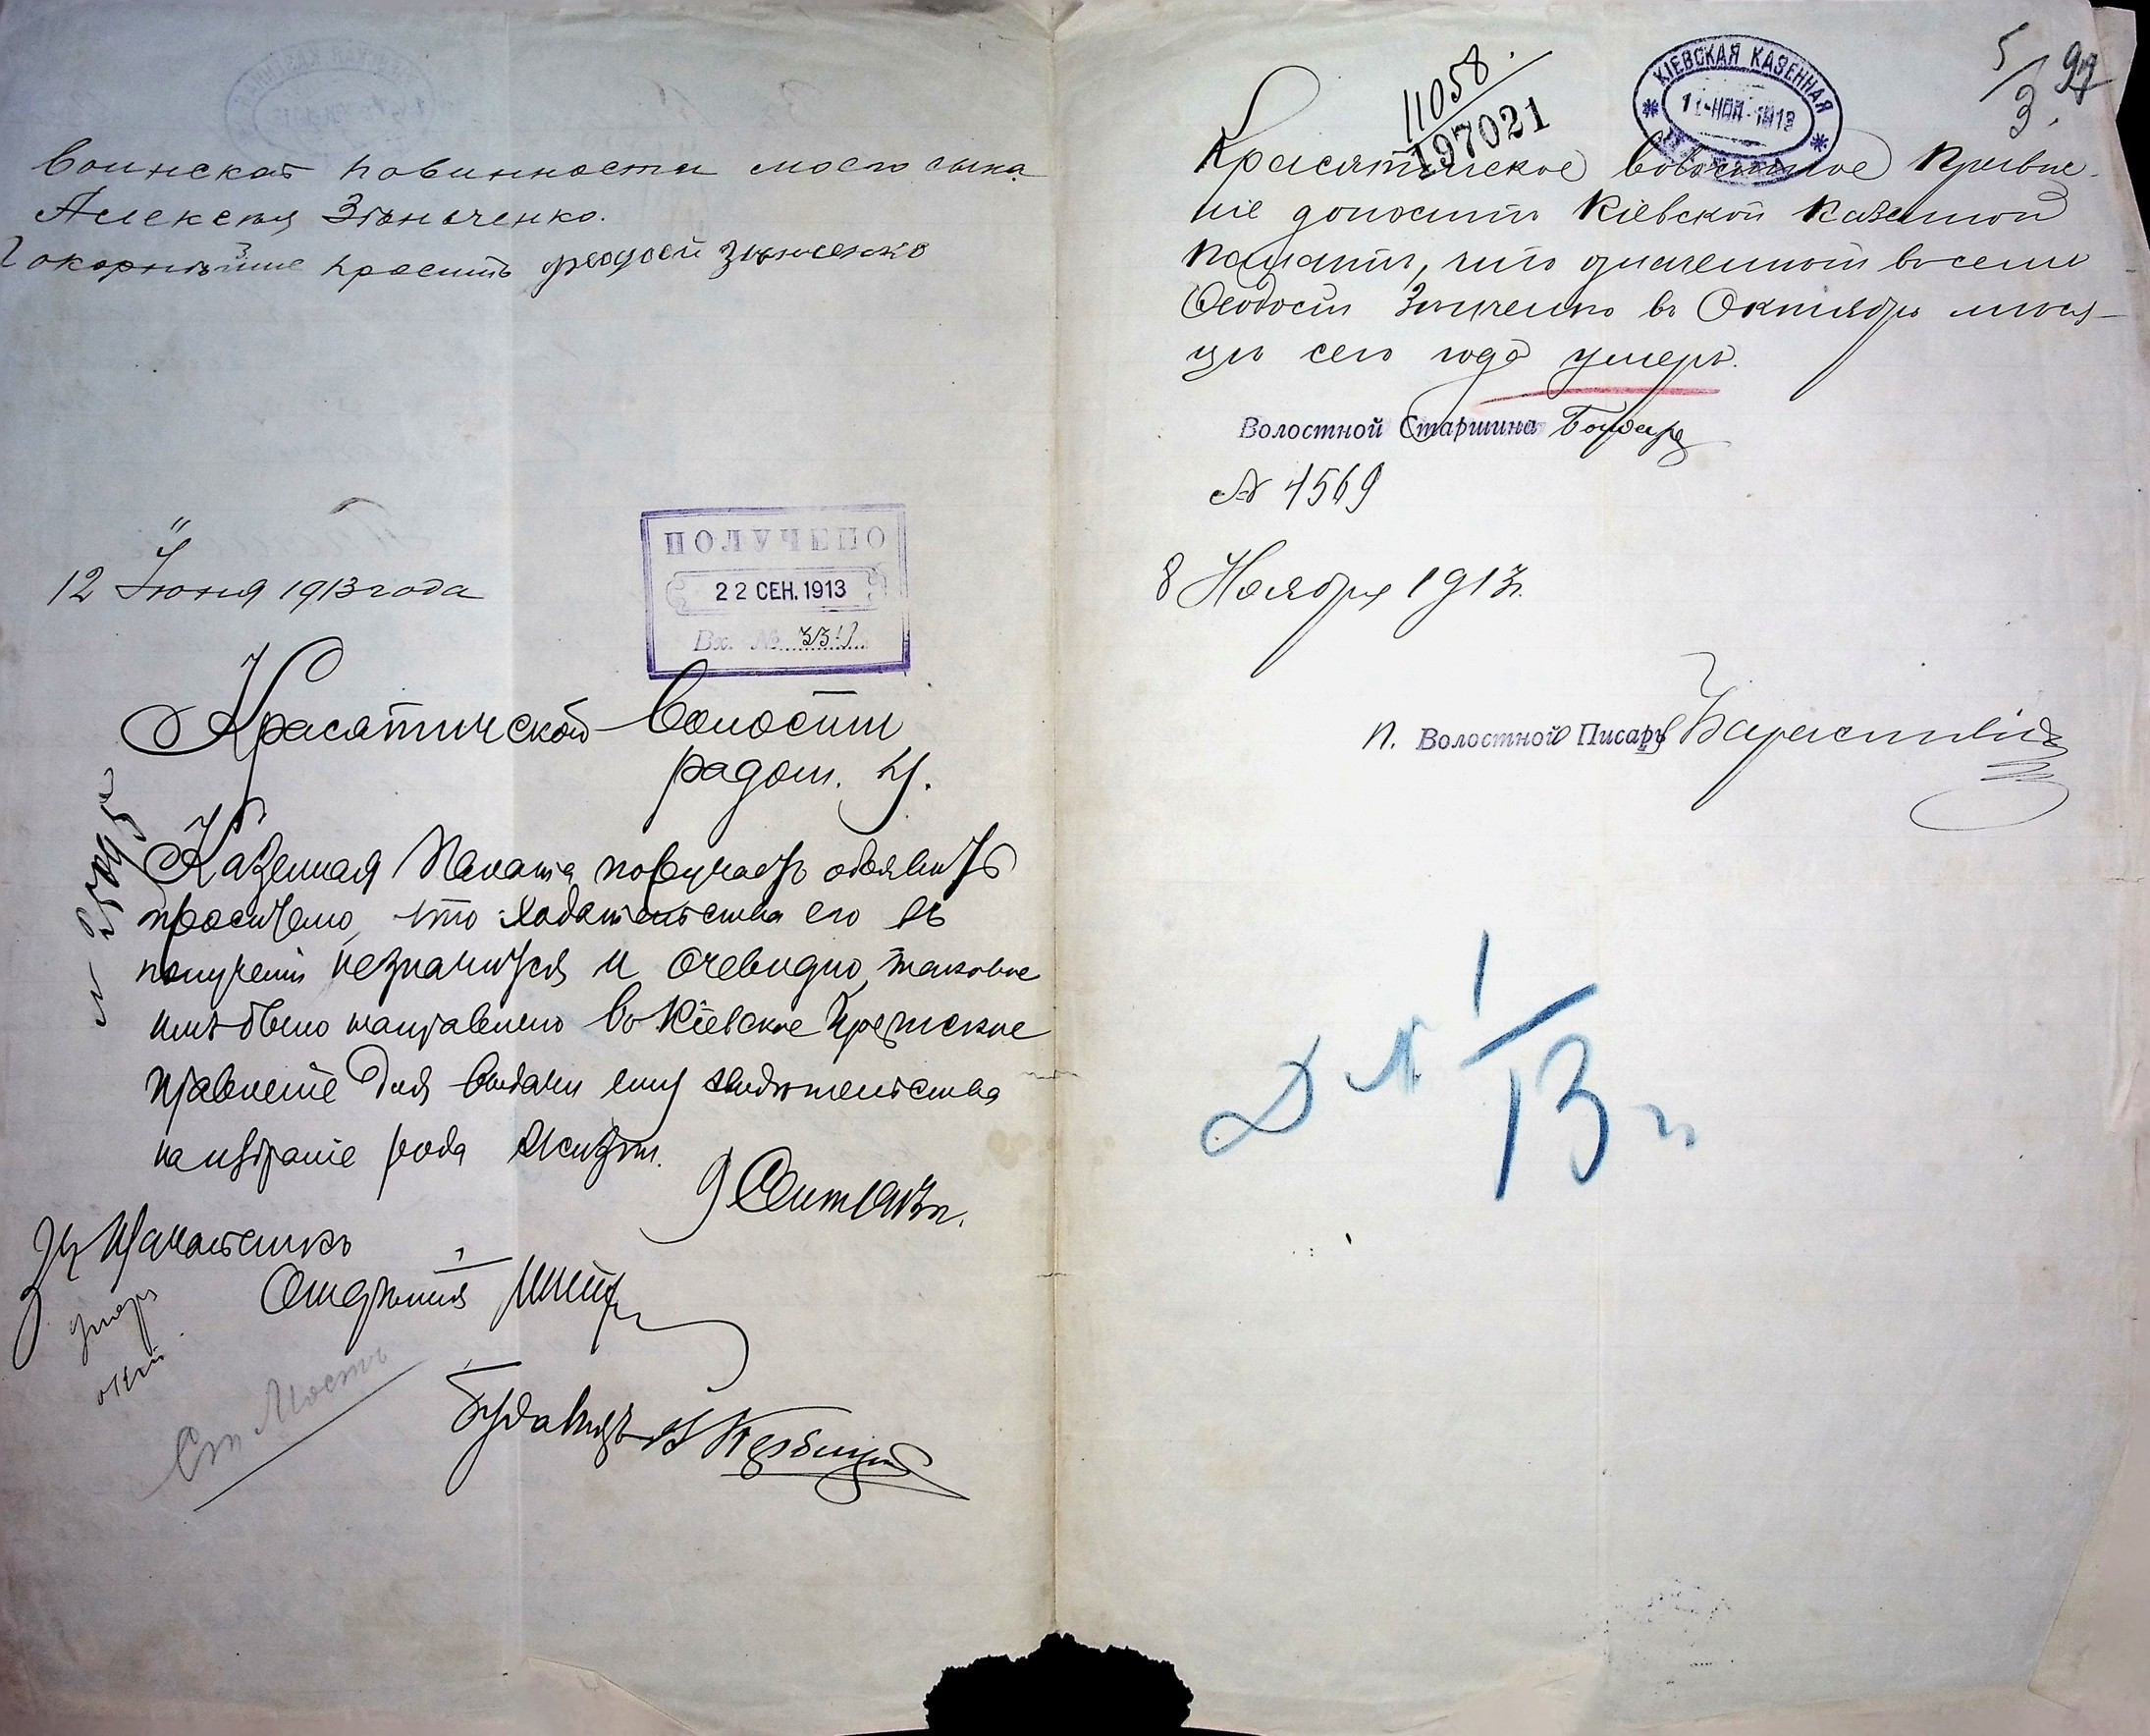 воинской повинности моего сына
Алексея Зѣньченко.
Покорнѣйше просить феодосй Зѣнченко
12 Іюня 1913 года
ПОЛУЧЕНО
22 СЕН. 1913
Вх. №
Красятичской Волостн
Казенная Палата поручаетъ объявить
просителю, что ходатайства его въ
полученіи не значится и очевидно, таковое
имъ было направлено въ Кіевское Губернское
правленіе для выдачи ему свидѣтельства
на избраніе рода жизни.
9 Сент 1913 г.
За Начальника
Отдѣленія
умеръ
11058
197021
КІЕВСКАЯ КАЗЕННАЯ
1913
5
3.
97
Красятичское волостное правле-
ніе доноситъ Кіевской Казенной
Палатѣ, что означенный въ семъ
Ѳеодосій Зинченко въ Октябрѣ мѣся-
цѣ сего года умеръ.
Волостной Старшина Бондарь
№ 4569
8 Ноября 1913 г.
П. Волостной Писарь
Д № 1/13 г